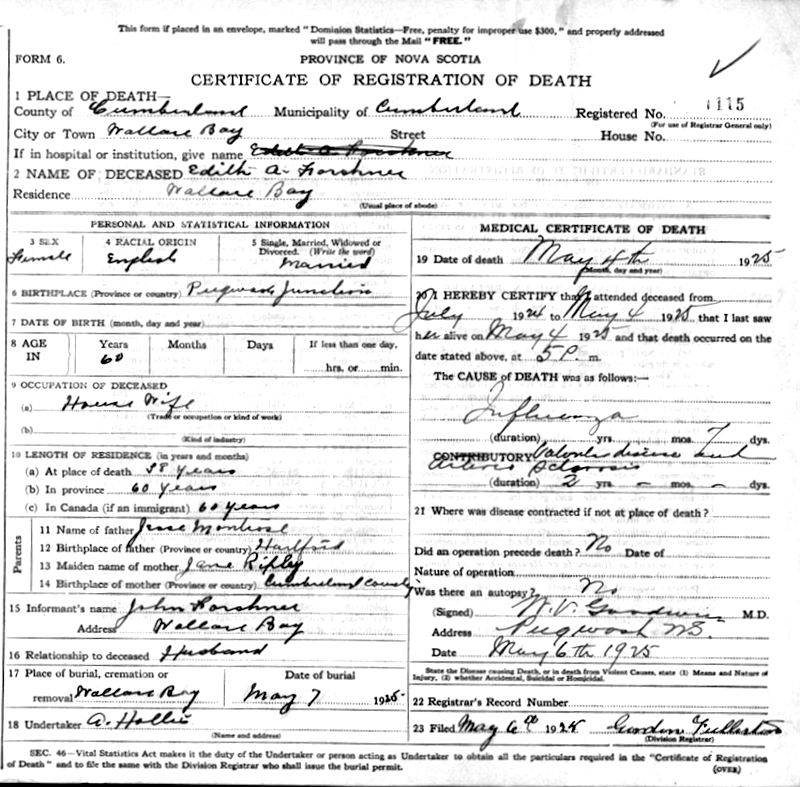 This form if placed in an envelope, marked "Dominion Statistics—Free, penalty for improper use $300," and properly addressed
will pass through the Mail "FREE."
FORM 6.
PROVINCE OF NOVA SCOTIA
CERTIFICATE OF REGISTRATION OF DEATH
1 PLACE OF DEATH—
County of Cumberland Municipality of Cumberland Registered No. 1115
(For use of Registrar General only)
City or Town Wallace Bay Street House No.
If in hospital or institution, give name Edith A. Forshner
2 NAME OF DECEASED Edith A. Forshner
Residence Wallace Bay
(Usual place of abode)
PERSONAL AND STATISTICAL INFORMATION
3 SEX 4 RACIAL ORIGIN 5 Single, Married, Widowed or
Divorced. (Write the word)
Female English Married
6 BIRTHPLACE (Province or country) Pugwash Junction
7 DATE OF BIRTH (month, day and year)
8 AGE IN Years Months Days If less than one day,
60 hrs. or min.
9 OCCUPATION OF DECEASED
(a) House Wife
(Trade or occupation or kind of work)
(b)
(Kind of industry)
10 LENGTH OF RESIDENCE (in years and months)
(a) At place of death 38 years
(b) In province 60 years
(c) In Canada (if an immigrant) 60 years
Parents
11 Name of father Jesse
12 Birthplace of father (Province or country)
13 Maiden name of mother Jane Ripley
14 Birthplace of mother (Province or country) Cumberland County
15 Informant's name John Forshner
Address Wallace Bay
16 Relationship to deceased Husband
17 Place of burial, cremation or Date of burial
removal Wallace Bay May 7 1925
18 Undertaker A. Hollis
(Name and address)
MEDICAL CERTIFICATE OF DEATH
19 Date of death May 4th 1925
(Month, day and year)
20 I HEREBY CERTIFY that I attended deceased from
July 1924 to May 4 1925 that I last saw
her alive on May 4 1925 and that death occurred on the
date stated above, at 5 P. m.
The CAUSE of DEATH was as follows:—
Influenza
(duration) yrs. mos. 7 dys.
CONTRIBUTORY Valvular disease and
Arterio Sclerosis
(duration) 2 yrs. – mos. – dys.
21 Where was disease contracted if not at place of death?
Did an operation precede death? No Date of
Nature of operation
Was there an autopsy? No
(Signed) W. V. Goodwin M.D.
Address Pugwash N.S.
Date May 6th 1925
State the Disease causing Death, or in death from Violent Causes, state (1) Means and Nature of
Injury, (2) whether Accidental, Suicidal or Homicidal.
22 Registrar's Record Number
23 Filed May 6th 1925 Gordon
(Division Registrar)
SEC. 46—Vital Statistics Act makes it the duty of the Undertaker or person acting as Undertaker to obtain all the particulars required in the "Certificate of Registration
of Death" and to file the same with the Division Registrar who shall issue the burial permit.
(OVER)